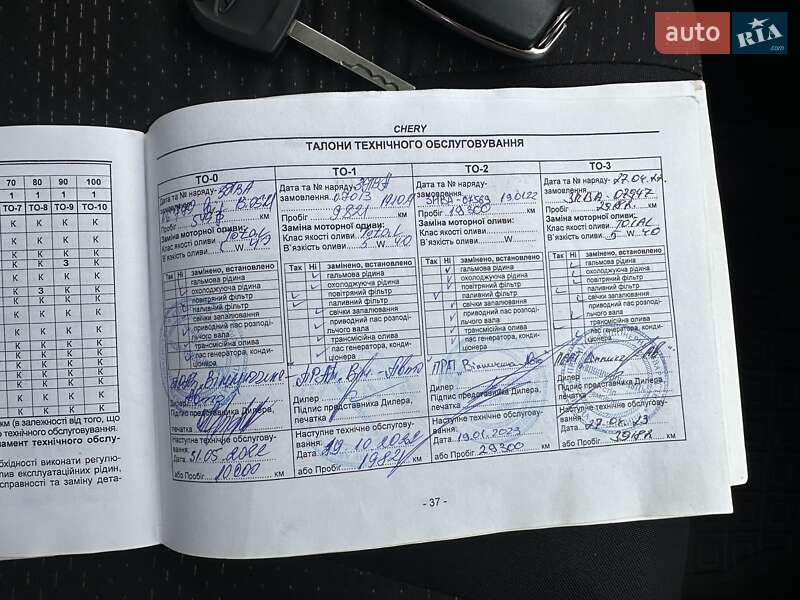 auto RIA
.com
CHERY
ТАЛОНИ ТЕХНІЧНОГО ОБСЛУГОВУВАННЯ
70 80 90 100
1 1 1 1
ТО-7 ТО-8 ТО-9 ТО-10
К К К К
К К К К
К К К К
К К З К
К К К К
К З К К
К К К К
км (в залежності від того, що
о технічного обслуговування.
мент технічного обслу-
бхідності виконати регулю-
лив експлуатаційних рідин,
справності та заміну дета-
ТО-0
Дата та № наряду-
замовлення
Пробіг км
Заміна моторної оливи:
Клас якості оливи Total
В'язкість оливи W
Так Ні замінено, встановлено
гальмова рідина
охолоджуюча рідина
повітряний фільтр
паливний фільтр
свічки запалювання
приводний пас розподі-
льчого вала
трансмісійна олива
пас генератора, конди-
ціонера
Дилер
Підпис представника Дилера,
печатка
Наступне технічне обслугову-
вання:
Дата 31.05.2022
або Пробіг 10000 км
ТО-1
Дата та № наряду-
замовлення
Пробіг 9821 км
Заміна моторної оливи:
Клас якості оливи Total
В'язкість оливи 5 W 40
Так Ні замінено, встановлено
гальмова рідина
охолоджуюча рідина
повітряний фільтр
паливний фільтр
свічки запалювання
приводний пас розподі-
льчого вала
трансмісійна олива
пас генератора, конди-
ціонера
Дилер
Підпис представника Дилера,
печатка
Наступне технічне обслугову-
вання:
Дата 19.10.2022
або Пробіг 19821 км
ТО-2
Дата та № наряду-
замовлення
19.01.22
Пробіг 19300 км
Заміна моторної оливи:
Клас якості оливи
В'язкість оливи W
Так Ні замінено, встановлено
гальмова рідина
охолоджуюча рідина
повітряний фільтр
паливний фільтр
свічки запалювання
приводний пас розподі-
льчого вала
трансмісійна олива
пас генератора, конди-
ціонера
Дилер
Підпис представника Дилера,
печатка
Наступне технічне обслугову-
вання:
Дата 19.01.2023
або Пробіг 29300 км
ТО-3
Дата та № наряду-
замовлення
Пробіг км
Заміна моторної оливи:
Клас якості оливи TOTAL
В'язкість оливи 5 W 40
Так Ні замінено, встановлено
гальмова рідина
охолоджуюча рідина
повітряний фільтр
паливний фільтр
свічки запалювання
приводний пас розподі-
льчого вала
трансмісійна олива
пас генератора, конди-
ціонера
Дилер
Підпис представника Дилера,
печатка
Наступне технічне обслугову-
вання:
Дата
або Пробіг км
- 37 -